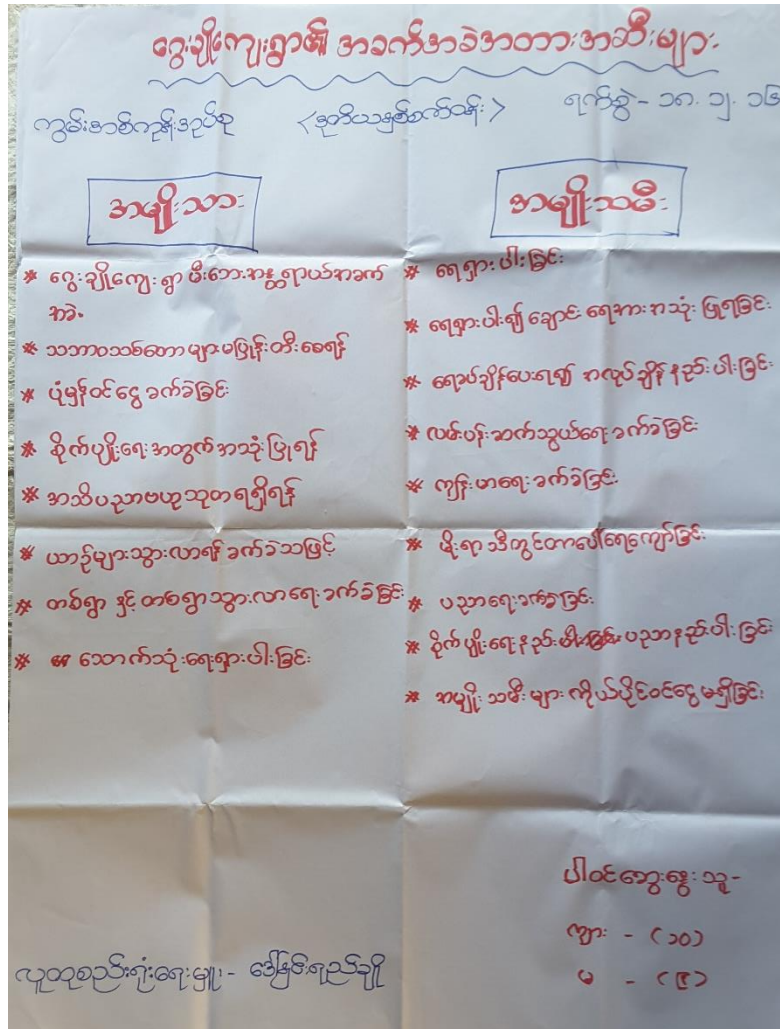 ဂွေးချိုကျေးရွာ၏ အခက်အခဲအတားအဆီးများ
ကွမ်းအစ်ကုန်းအုပ်စု <ဒုတိယနှစ်စက်ဝန်း> ရက်စွဲ - ၁၈. ၁၂. ၁၆
အမျိုးသား
* ဂွေးချိုကျေးရွာ မီးဘေးအန္တရာယ်အခက်
အခဲ.
* သဘာဝသစ်တောများမပြုန်းတီးစေရန်
* ပုံမှန်ဝင်ငွေခက်ခဲခြင်း
* စိုက်ပျိုးရေးအတွက်အသုံးပြုရန်
* အသိပညာဗဟုသုတရရှိရန်
* ယာဉ်များသွားလာရန်ခက်ခဲသဖြင့်
* တစ်ရွာ နှင့် တစ်ရွာသွားလာရေးခက်ခဲခြင်း
* သောက်သုံးရေရှားပါးခြင်း
အမျိုးသမီး
* ရေရှားပါးခြင်း
* ရေရှားပါး၍ ချောင်းရေအားအသုံးပြုရခြင်း
* ရေခပ်ချိန်ပေးရ၍ အလုပ်ချိန်နည်းပါးခြင်း
* လမ်းပန်းဆက်သွယ်ရေးခက်ခဲခြင်း
* ကျန်းမာရေးခက်ခဲခြင်း
* မိုးရာသီတွင်တာပေါ်ရေကျော်ခြင်း
* ပညာရေးခက်ခဲခြင်း
* စိုက်ပျိုးရေးနည်းပညာနည်းပါးခြင်း
* အမျိုးသမီးများကိုယ်ပိုင်ဝင်ငွေမရှိခြင်း
ပါဝင်ဆွေးနွေးသူ-
ကျား - (၁၀)
မ - (၉)
လူထုစည်းရုံးရေးမှူး - ဒေါ်နှင်းရည်ချို